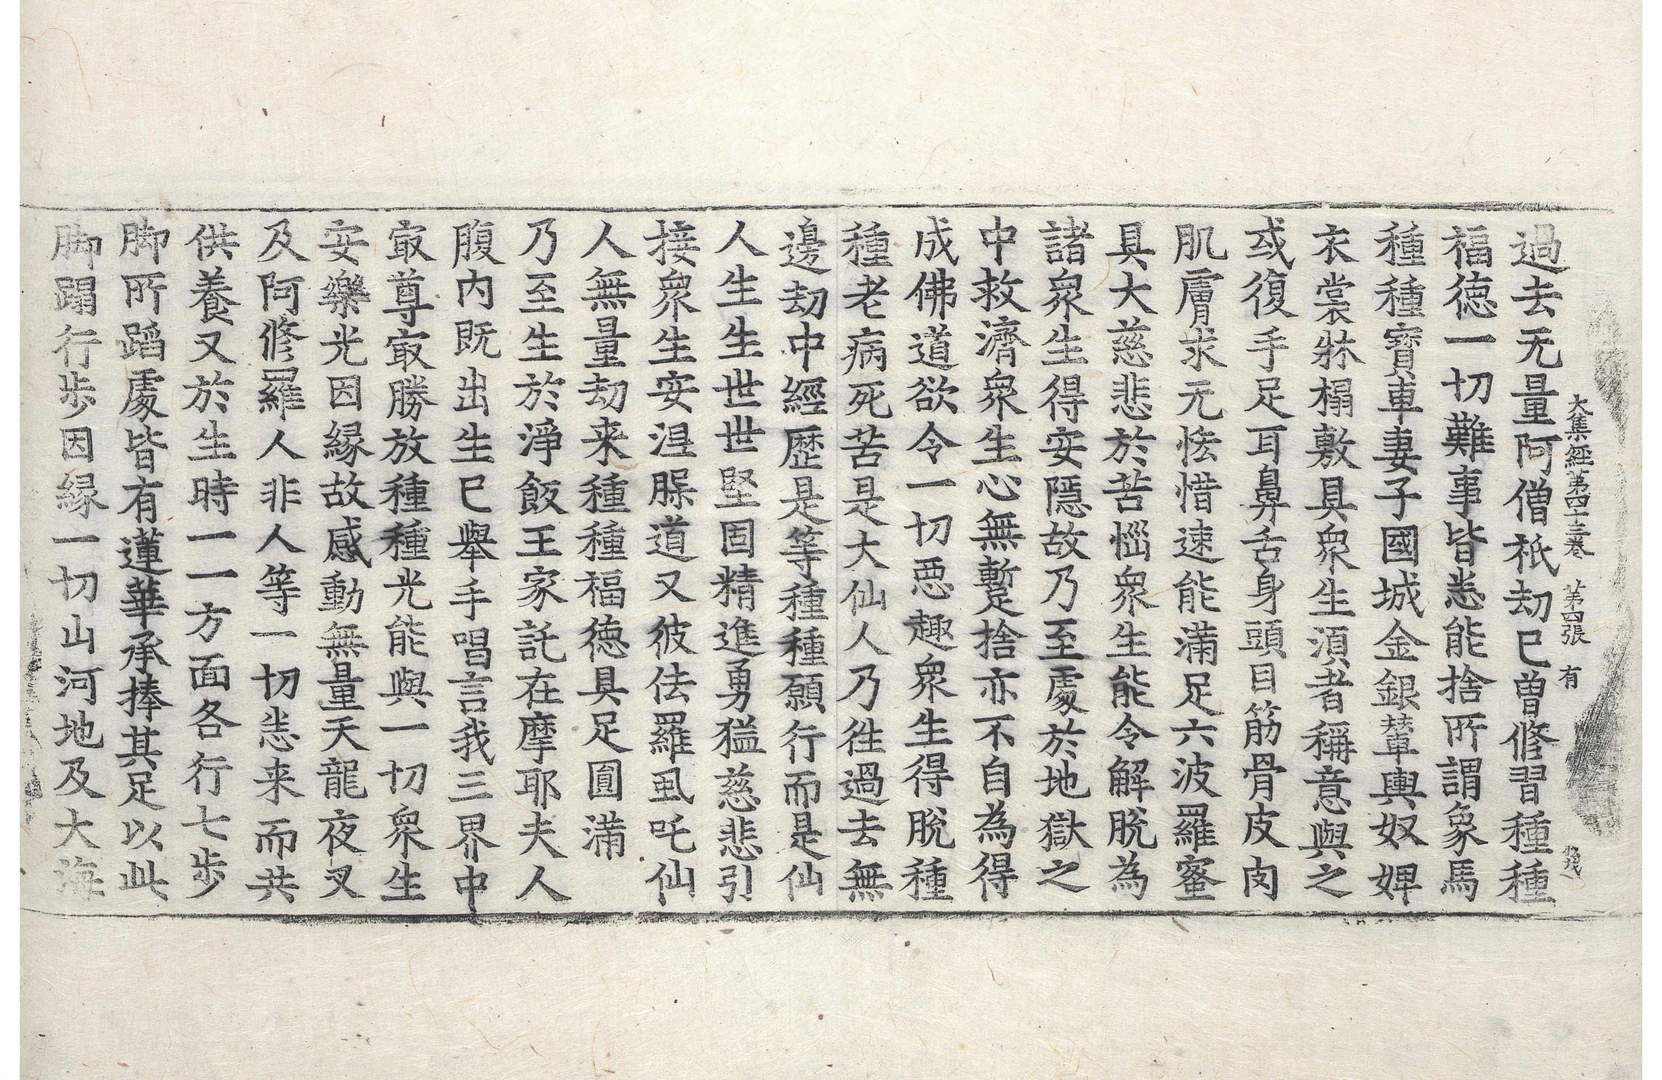 大集經第四十三卷 第四張 有
過去无量阿僧祇劫已曽修習種種
福徳一切難事皆悉能捨所謂象馬
種種寶車妻子國城金銀輦輿奴婢
衣裳牀榻敷具衆生湏者稱意與之
或復手足耳鼻舌身頭目筋骨皮肉
肌膚求无恡惜速能滿足六波羅蜜
具大慈悲於苦惱衆生能令解脫為
諸衆生得安隱故乃至處於地獄之
中救濟衆生心無蹔捨亦不自為得
成佛道欲令一切惡趣衆生得脫種
種老病死苦是大仙人乃徃過去無
邊劫中經歷是等種種願行而是仙
人生生世世堅固精進勇猛慈悲引
接衆生安涅槃道又彼佉羅虱吒仙
人無量劫来種種福徳具足圓滿
乃至生於淨飯王家託在摩耶夫人
腹内既出生已舉手唱言我三界中
㝡尊㝡勝放種種光能與一切衆生
安樂光因縁故感動無量天龍夜叉
及阿修羅人非人等一切悉来而共
供養又於生時一一方面各行七步
脚所蹈處皆有蓮華承捧其足以此
脚蹋行步因縁一切山河地及大海